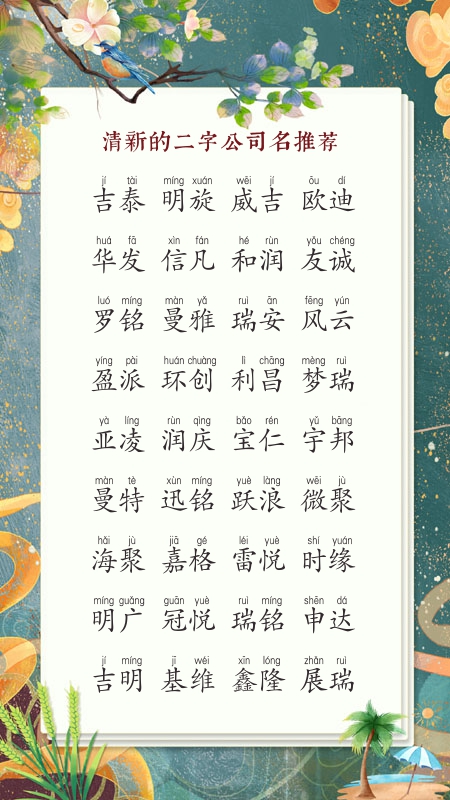 清新的二字公司名推荐
jí tài míng xuán wēi jí ōu dí
吉泰 明旋 威吉 欧迪
huá fā xìn fán hé rùn yǒu chéng
华发 信凡 和润 友诚
luó míng màn yǎ ruì ān fēng yún
罗铭 曼雅 瑞安 风云
yíng pài huán chuàng lì chāng mèng ruì
盈派 环创 利昌 梦瑞
yà líng rùn qìng bǎo rén yǔ bāng
亚凌 润庆 宝仁 宇邦
màn tè xùn míng yuè làng wēi jù
曼特 迅铭 跃浪 微聚
hǎi jù jiā gé léi yuè shí yuán
海聚 嘉格 雷悦 时缘
míng guǎng guān yuè ruì míng shēn dá
明广 冠悦 瑞铭 申达
jí míng jī wéi xīn lóng zhǎn ruì
吉明 基维 鑫隆 展瑞